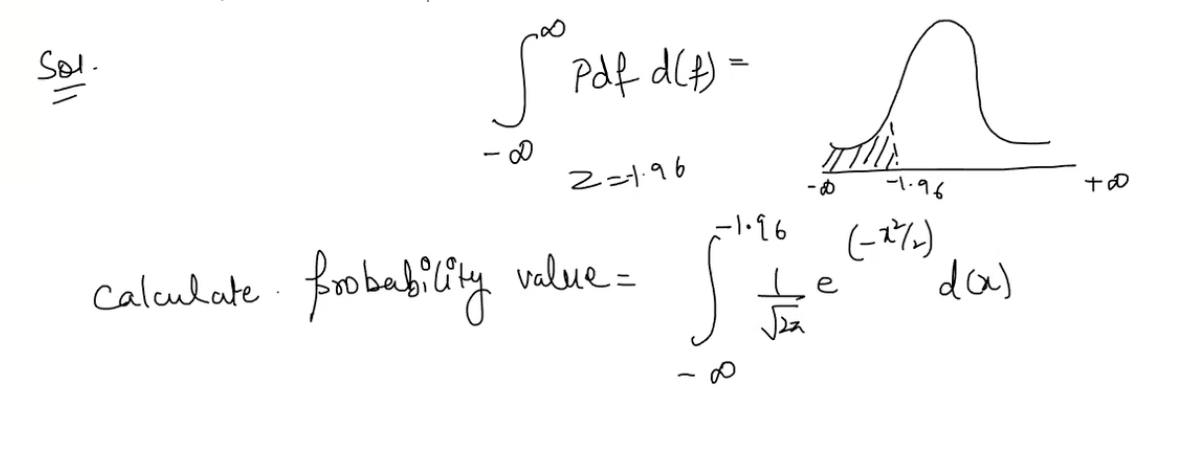 Sol.
∫_{-∞}^{∞} Pdf d(f) =
Z = -1.96
-∞ -1.96 +∞
Calculate. probability value = ∫_{-∞}^{-1.96} 1/√2π e^{(-x²/2)} d(x)